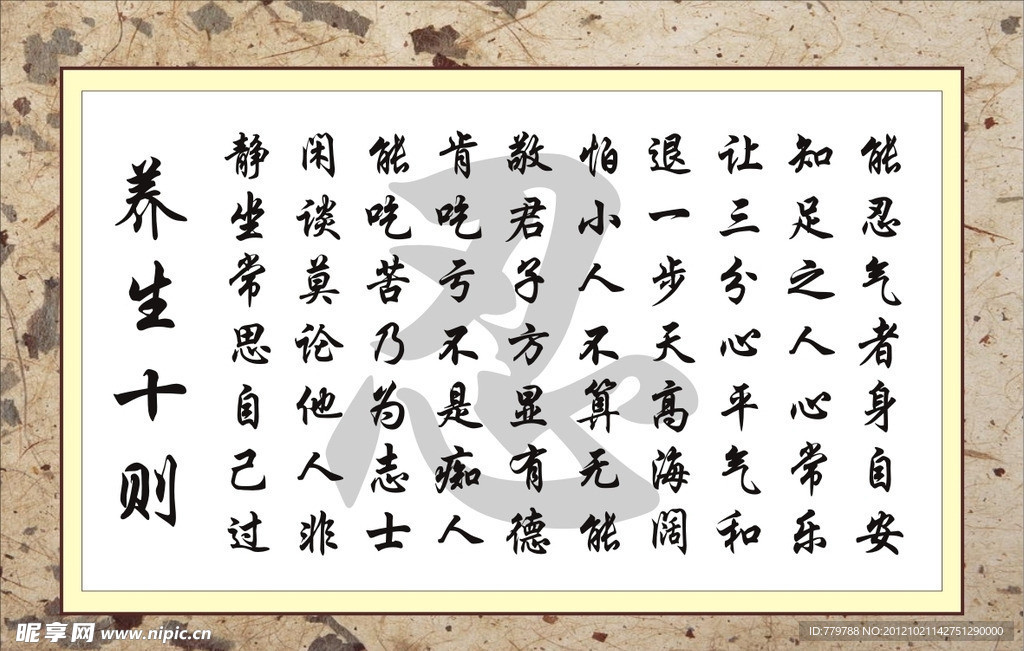 养生十则
静坐常思自己过
闲谈莫论他人非
能吃苦乃为志士
肯吃亏不是痴人
敬君子方显有德
怕小人不算无能
退一步天高海阔
让三分心平气和
知足之人心常乐
能忍气者身自安
忍
昵享网 www.nipic.cn
ID:779788 NO:20121021142751290000